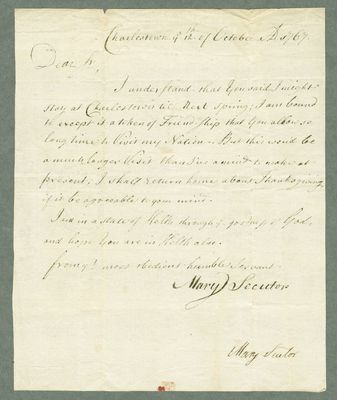 Charlestown yᵉ of October AD 1767
Dear Sʳ,
I understand that You said I might
stay at Charlestown til Next Spring; I am bound
to except it a token of Friendship that You allow so
long time to Visit my Nation. But this would be
a much longer Visit than I've a mind to make at
present; I shall return home about Thanksgiving
if it be agreeable to your mind.
I am in a state of Helth through yᵉ goodness of God,
and hope You are in Helth also.
from yʳ most obedient humble Servant.
Mary Secutor
Mary Secutor